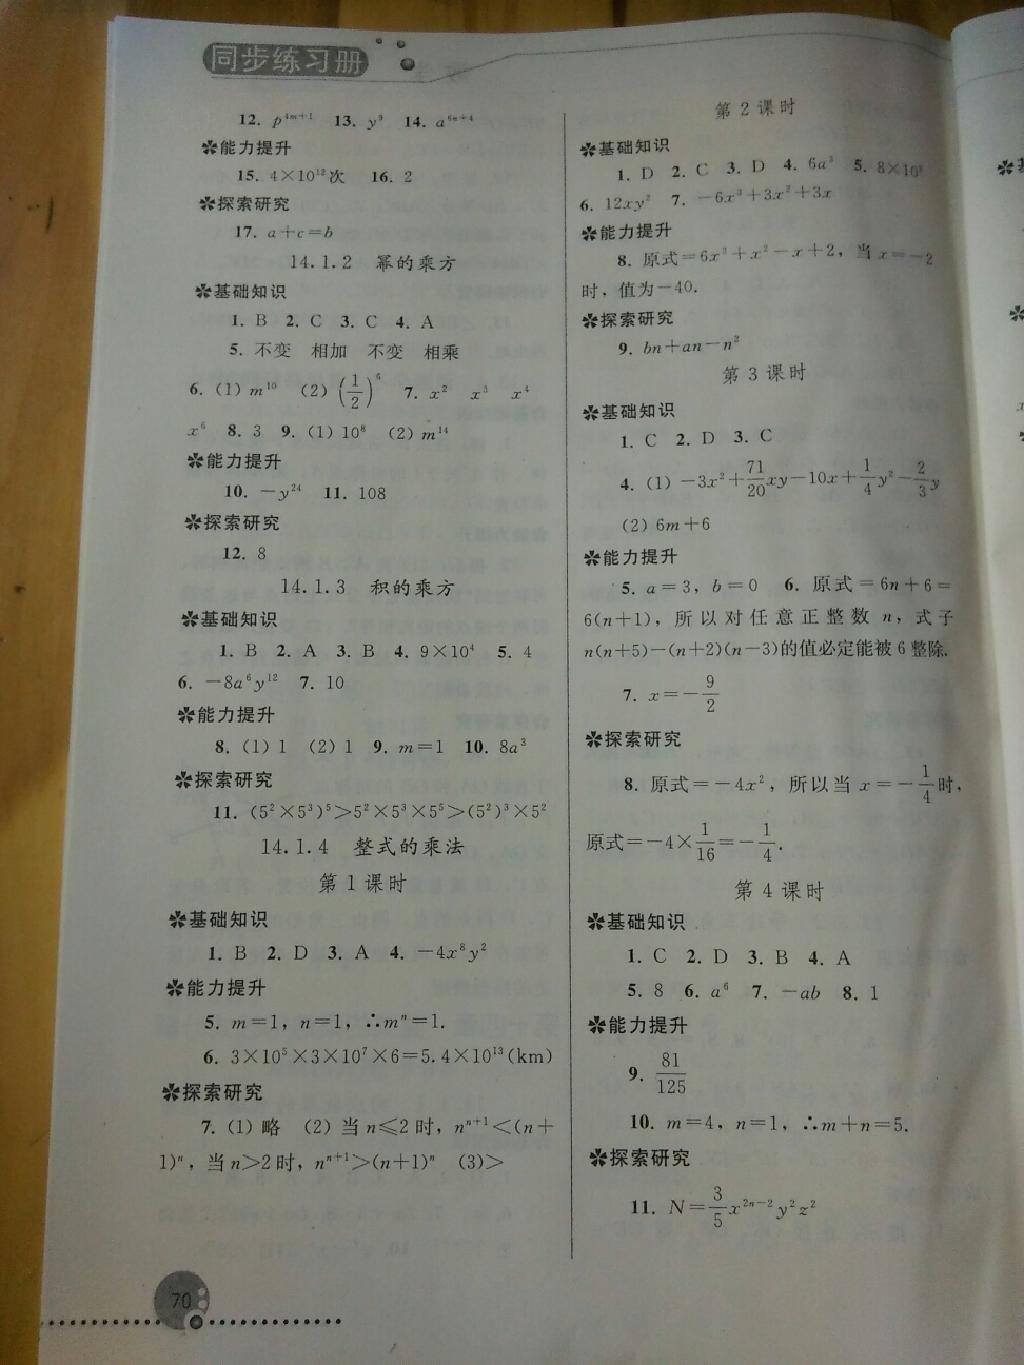 同步练习册
12. p⁴ᵐ⁺¹ 13. y⁹ 14. a⁶ⁿ⁺⁴
❇能力提升
15. 4×10¹²次 16. 2
❇探索研究
17. a+c=b
14.1.2 幂的乘方
❇基础知识
1. B 2. C 3. C 4. A
5. 不变 相加 不变 相乘
6. (1) m¹⁰ (2) (1/2)⁶ 7. x² x³ x⁴
x⁶ 8. 3 9. (1) 10⁸ (2) m¹⁴
❇能力提升
10. −y²⁴ 11. 108
❇探索研究
12. 8
14.1.3 积的乘方
❇基础知识
1. B 2. A 3. B 4. 9×10⁴ 5. 4
6. −8a⁶y¹² 7. 10
❇能力提升
8. (1) 1 (2) 1 9. m=1 10. 8a³
❇探索研究
11. (5²×5³)⁵>5²×5³×5⁵>(5²)³×5²
14.1.4 整式的乘法
第1课时
❇基础知识
1. B 2. D 3. A 4. −4x⁸y²
❇能力提升
5. m=1, n=1, ∴mⁿ=1.
6. 3×10⁵×3×10⁷×6=5.4×10¹³(km)
❇探索研究
7. (1) 略 (2) 当n≤2时, nⁿ⁺¹<(n+
1)ⁿ, 当n>2时, nⁿ⁺¹>(n+1)ⁿ (3)>
70
第2课时
❇基础知识
1. D 2. C 3. D 4. 6a³ 5. 8×10⁹
6. 12xy² 7. −6x³+3x²+3x
❇能力提升
8. 原式=6x³+x²−x+2, 当x=−2
时, 值为−40.
❇探索研究
9. bn+an−n²
第3课时
❇基础知识
1. C 2. D 3. C
4. (1) −3x²+71/20xy−10x+1/4y²−2/3y
(2) 6m+6
❇能力提升
5. a=3, b=0 6. 原式=6n+6=
6(n+1), 所以对任意正整数n, 式子
n(n+5)−(n+2)(n−3)的值必定能被6整除.
7. x=−9/2
❇探索研究
8. 原式=−4x², 所以当x=−1/4时,
原式=−4×1/16=−1/4.
第4课时
❇基础知识
1. C 2. D 3. B 4. A
5. 8 6. a⁶ 7. −ab 8. 1
❇能力提升
9. 81/125
10. m=4, n=1, ∴m+n=5.
❇探索研究
11. N=3/5x²ⁿ⁻²y²z²